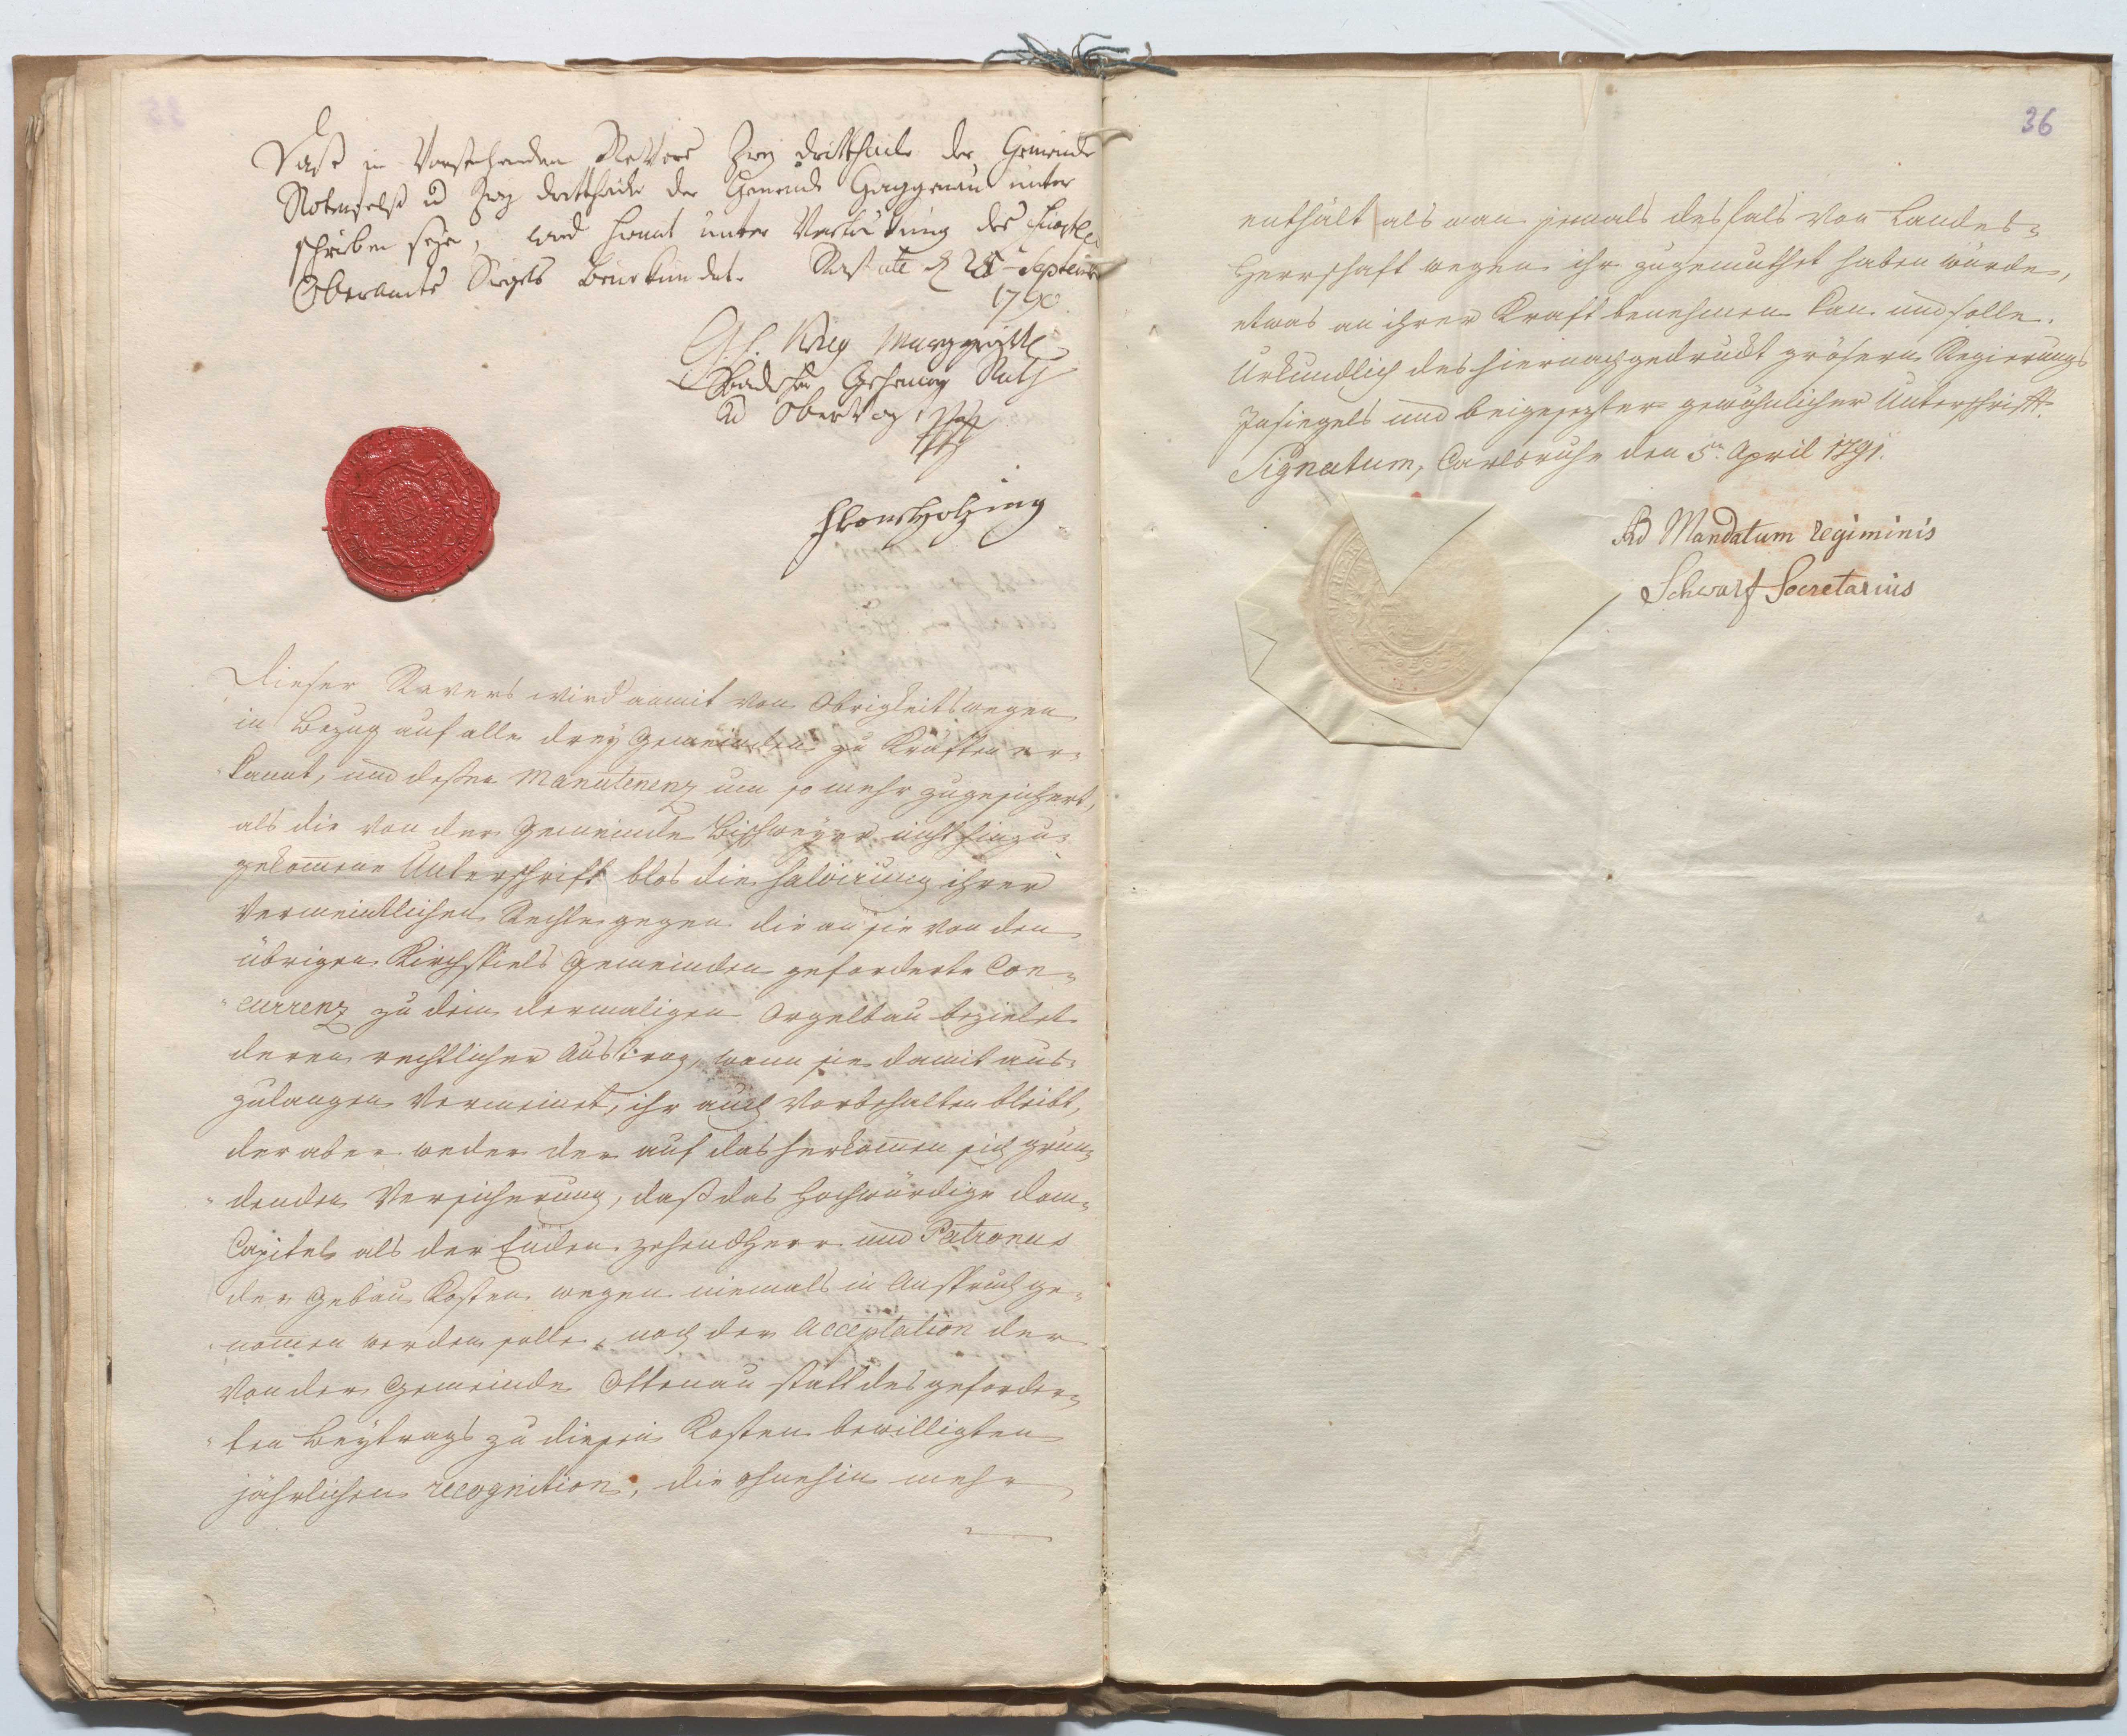 Daß in Vorstehenden Revers Zwey drittheile der Gemeinde
Rotenfels und Zwey drittheile der Gemeinde Gaggenau unter
schrieben seye, wird hiemit unter Vordrückung des
Oberamts Sigels beurkundet. Rastatt d. September
1790.
Marggräfl
Badischer Geheimer Rath
und Obervogt
Dieser Revers wird anmit von Obrigkeitswegen
in Bezug auf alle drey Gemeinden zu Kräften er-
kannt, und deßen Manutenenz um so mehr zugesichert,
als die von der Gemeinde Bischweyer nicht hinzu-
gekommene Unterschrift blos die Salvirung ihrer
vermeintlichen Rechte gegen die an sie von den
übrigen Kirchspiels Gemeinden geforderte Con-
currenz zu dem dermaligen Orgelbau bezielet
deren rechtlicher Austrag, wann sie damit aus-
zulangen vermeinet, ihr auch vorbehalten bleibt,
der aber weder der auf das Herkommen sich grün-
denden Versicherung, daß das Hochwürdige Dom-
Capitel als der Enden Zehendherr und Patronus
der Gebäu Kosten wegen niemals in Anspruch ge-
nommen werden solle, noch der Acceptation der
von der Gemeinde Ottenau statt des geforder-
ten Beytrags zu diesen Kosten bewilligten
jährlichen recognition, die ohnehin mehr
36
enthält als man jemals desfals von Landes-
Herrschaft wegen ihr zugemuthet haben würde,
etwas an ihrer Kraft benehmen kan und solle.
Urkundlich des hiernach gedruckt grösern Regierungs
Insiegels und beigesezter gewöhnlicher Unterschrift.
Signatum, Carlsruhe den 5n April 1791.
Ad Mandatum regiminis
Schwarz Secretarius